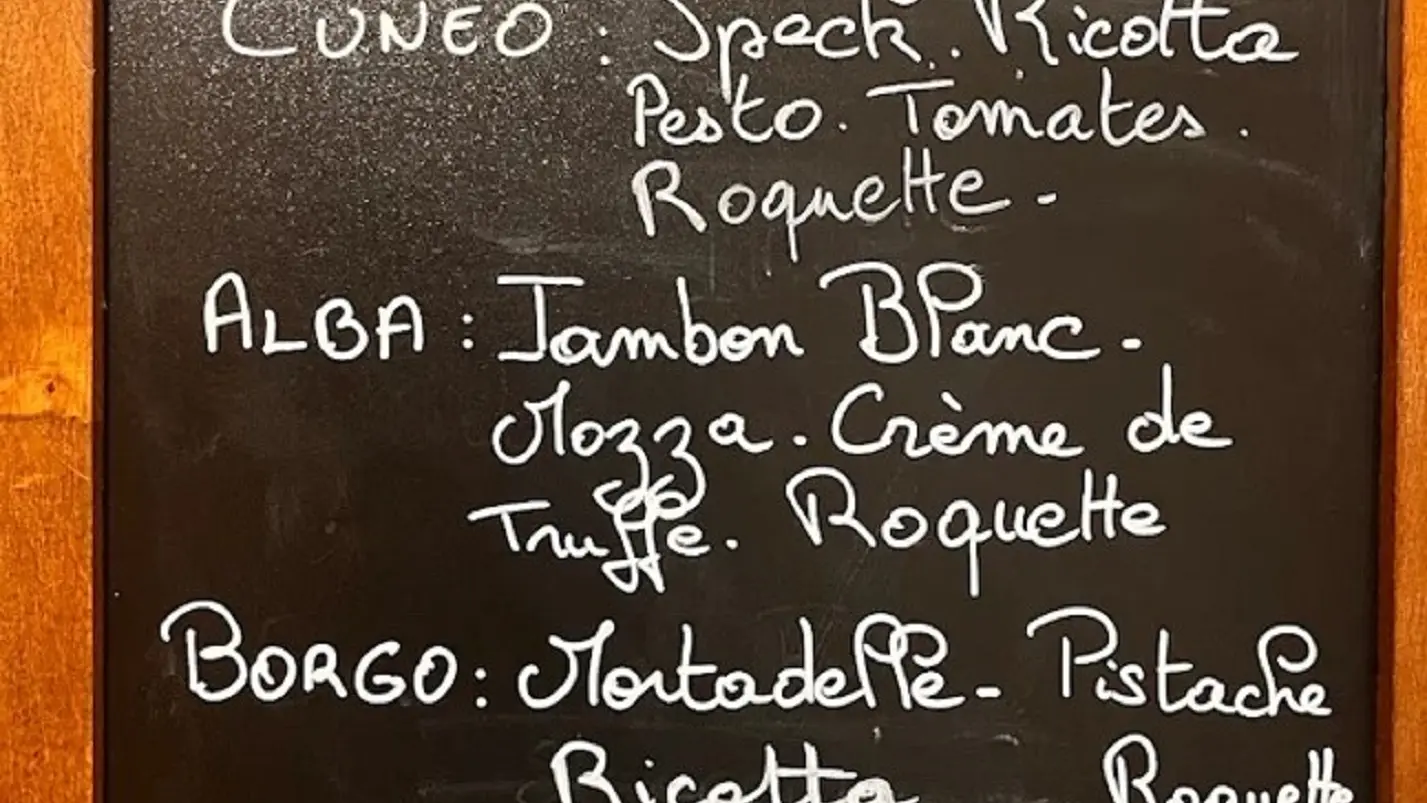 CUNEO : Speck. Ricotta
Pesto. Tomates.
Roquette -
ALBA : Jambon Blanc -
Mozza. Crème de
Truffe. Roquette
BORGO : Mortadelle - Pistache
Ricotta - Roquette